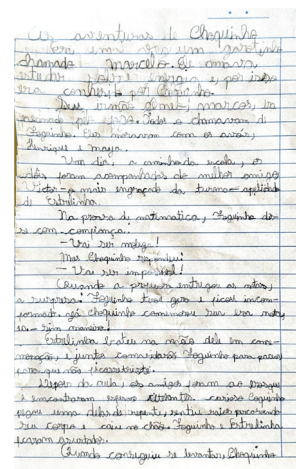 As aventuras de Choquinho
era uma vez um garotinho
chamado Marcelo. Ele amava
estudar sobre energia e por isso
era conhecido por
Seu irmão gêmeo, Marcos, era
por fogo. Todos o chamavam de
Foguinho. Eles moravam com os avós,
Henrique e Maya.
Um dia, a caminho da escola, os
dois foram acompanhados do melhor amigo
Victor - o mais engraçado da turma - apelidado
de Estrelinha.
Na prova de matemática, Foguinho dis-
se com confiança:
- Vai ser moleza!
Mas Choquinho respondeu:
- Vai ser impossível!
Quando a professora entregou as notas,
a surpresa: Foguinho tirou zero e ficou incon-
formado. Já Choquinho comemorou sua boa nota,
Estrelinha bateu na mão dele em come-
moração, e juntos Foguinho para
para que não
Depois da aula, os amigos foram ao bosque
e encontraram
pegou uma delas de repente, sentiu
seu corpo e caiu no chão. Foguinho e Estrelinha
ficaram assustados.
Quando conseguiu se levantar, Choquinho